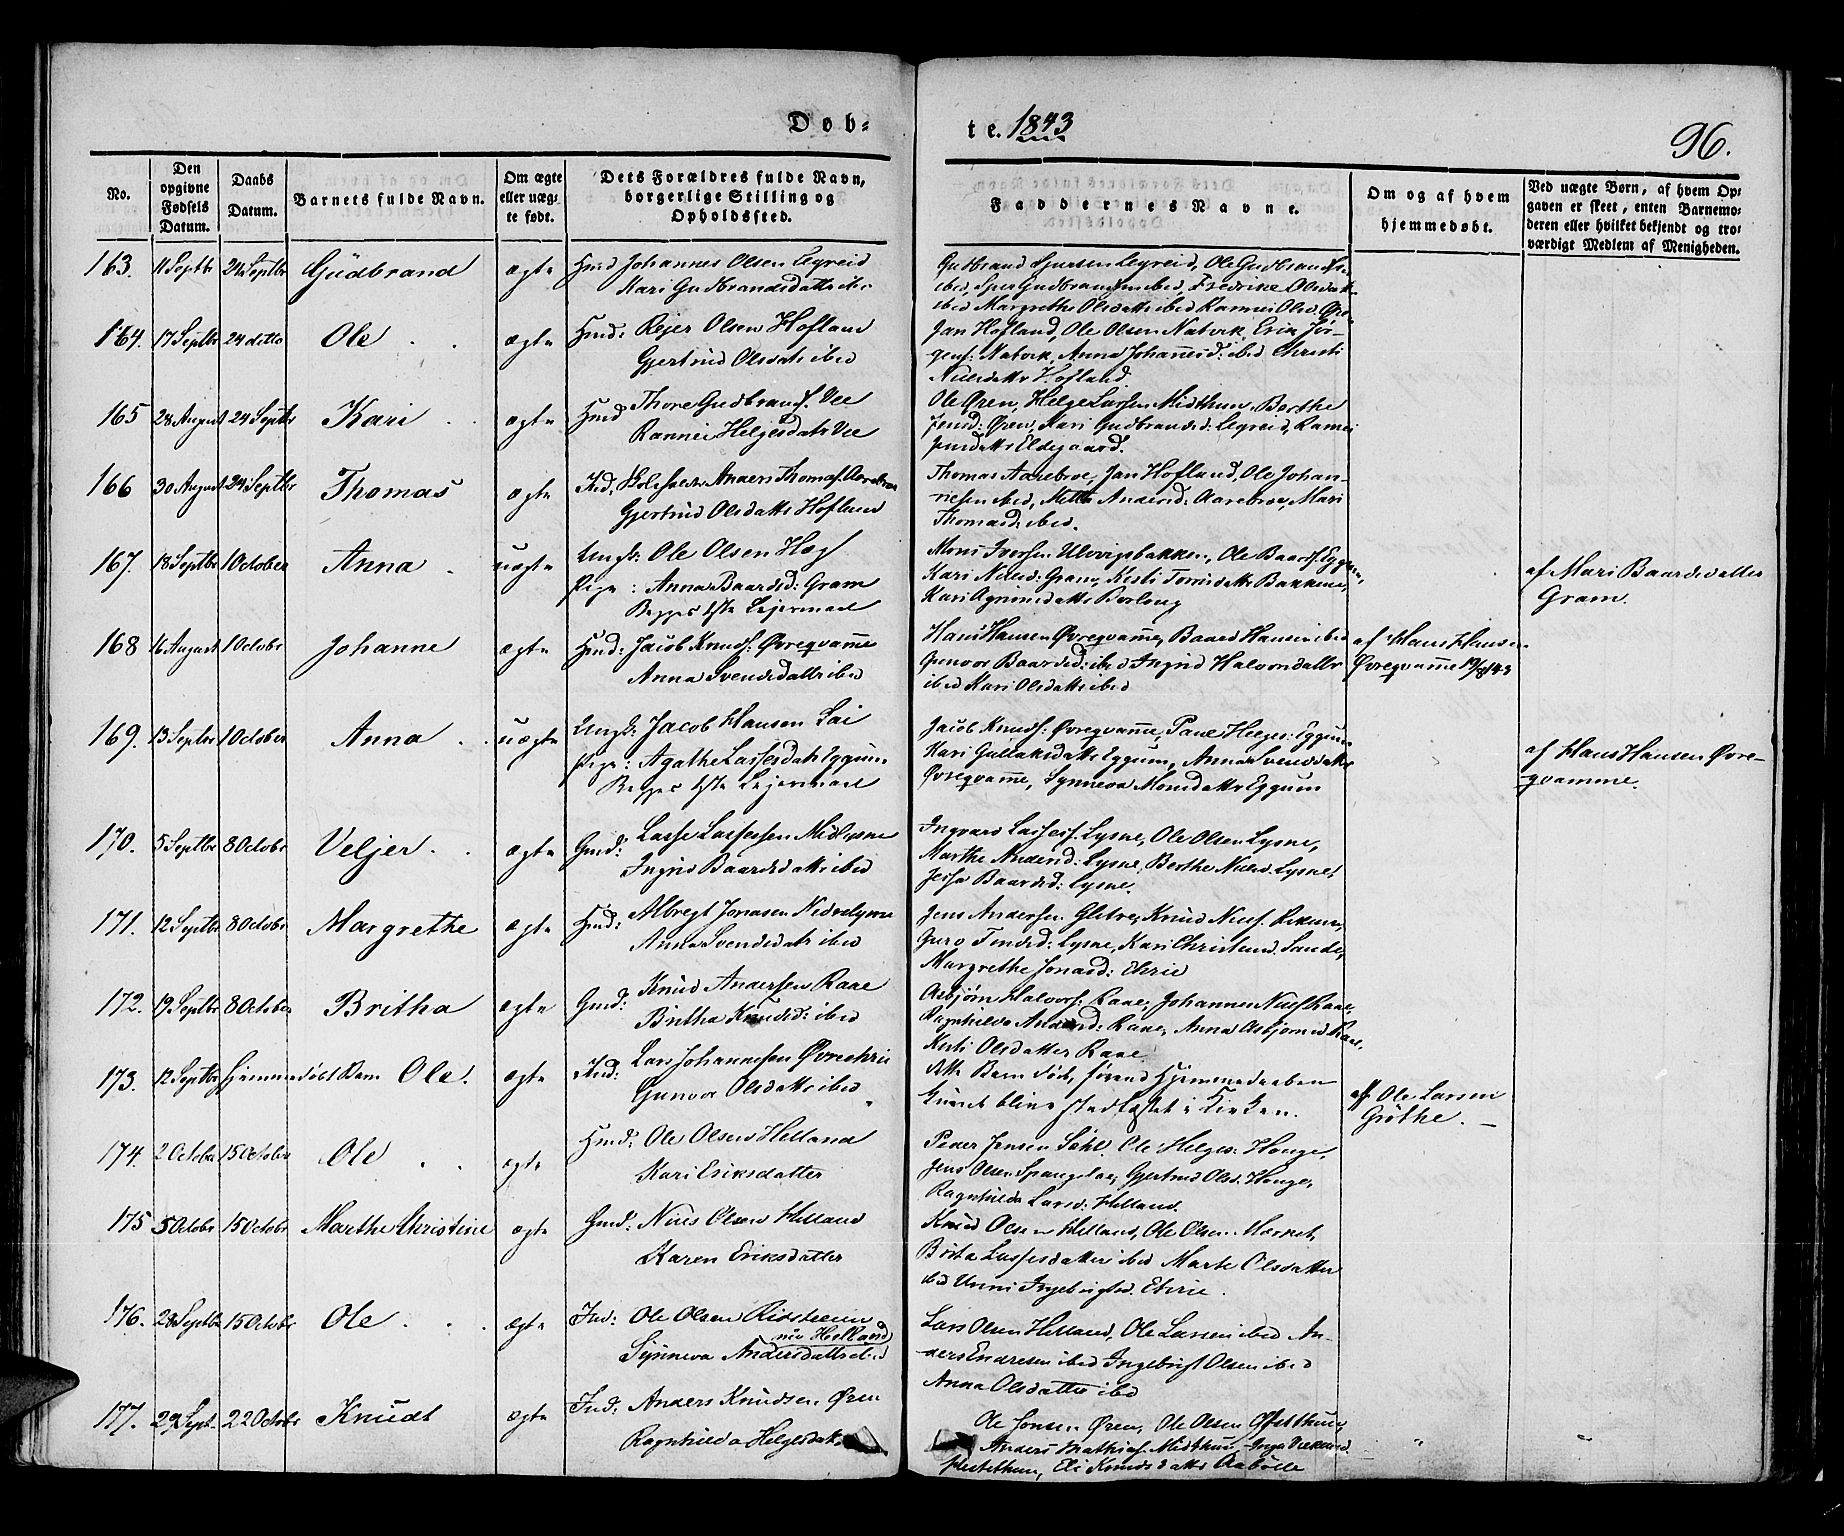 Døb=
te. 1843
96.
No.
Den opgivne Fødsels Datum.
Daabs Datum.
Barnets fulde Navn.
Om ægte eller uægte født.
Dets Forældres fulde Navn, borgerlige Stilling og Opholdssted.
Faddernes Navne.
Om og af hvem hjemmedøbt.
Ved uægte Børn, af hvem Opgaven er skeet, enten Barnemoderen eller hvilket bekjendt og troværdigt Medlem af Menigheden.
163. 11 Septbr 24 Septbr Gudbrand ægte Hmd Johannes Olsen Legreid
Kari Gudbrandsdattr ibd
Gudbrand Sjursen Legreid, Ole Gudbrandsen
ibid, Sjur Gudbrandsen ibid, Fredrike Olsdattr
ibid Margrethe Olsdattr ibid
164. 17 Septbr 24 ditto Ole ægte Hmd: Rejer Olsen Hofland
Gjertrud Olsdatr ibid
Jan Hofland, Ole Olsen Natvik, Erik Jør-
gens: Natvik, Anna Johannesd: ibid Christi
Nielsdattr Hofland.
165 28 August 24 Septbr Kari ægte Hmd Thore Gudbrands. Vee
Rannei Helgesdatr Vee
Ole Øren, Helge Larsen Midthun, Berthe
Jensd: Øren, Kari Gudbrandsd: Legreid, Rannei
Jensdattr Eldegaard.
166 30 August 24 Septbr Thomas ægte Ind. Anders Thomas. Aarebroe
Gjertrud Olsdattr Hofland
Thomas Aarebroe, Jan Hofland, Ole Johan-
nesen ibid, Mette Andersd: Aarebroe, Mari
Thomasd: ibid.
167. 18 Septbr 1 October Anna uægte Ungk: Ole Olsen Hæg
Pige: Anna Baardsd: Gram
Begges 1ste Leiermaal
Mons Iversen Ulvigsbakken, Ole Baards. Eggum,
Kari Nielsd: Gram, Kesti Bakkene,
Kari
af Mari Baardsdatter
Gram.
168 16 August 1 Octobr Johanne ægte Hmd: Jacob Knuds: Øvreqvamme
Anna Svendsdattr ibid
Hans Hansen Øvreqvamme, Baard Hansen ibid
Gunvor Baardsd: ibid Ingrid Halvorsdattr
ibid Kari Olsdattr ibid
af Hans Hansen
Øvreqvamme 19/8 43
169. 13 Septbr 1 October Anna uægte Ungk: Jacob Hansen Lai
Pige: Agathe Lassesdatr Eggum
Begges 1ste Leiermaal
Jacob Knuds: Øvreqvamme, Paul Helges: Eggum
Kari Gullaksdattr Eggum, Anna Svendsdattr
Øvreqvamme, Synneva Monsdattr Eggum
af Hans Hansen Øvre-
qvamme.
170. 5 Septbr 8 Octobr Veljer ægte Gmd: Lasse Lassesen Midlysne
Ingrid Baardsdattr ibid
Ingvard Lasses. Lysne, Ole Olsen Lysne,
Marthe Andersd: Lysne, Berthe Nielsd. Lysne,
Baardsd: Lysne.
171. 12 Septbr 8 Octobr Margrethe ægte Hmd: Albregt Jonasen Nedrelysne
Anna Svendsdatr ibid
Jens Andersen Gletre, Knud Niels.
Guro Lysne, Kari Christensd. Sande,
Margrethe Jonasd: Ehrie
172. 19 Septbr 8 October Britha ægte Gmd: Knud Andersen Raae
Britha Knudsd: ibid
Asbjørn Halvors: Raae, Johannes Niels. Raae,
Ragnhilde Andersd: Raae, Anna Asbjørnsd. Raae,
Kesti Olsdatter Raae
173. 12 Septbr hjemmedøbt Barn Ole. ægte Ind: Lars Johannesen Øvreehrie
Gunvor Olsdattr ibid
Dette Barn døde, førend Hjemmedaaben
kunde blive stadfæstet i Kirken.
af Ole Larsen
Grøthe.
174. 2 Octobr 15 October Ole ægte Hmd: Ole Olsen Helland
Kari Eriksdatter
Peder Jensen Ole Helges: Hauge,
Jens Olsen Gjertrud Olsd. Hauge,
Ragnhilde Larsd: Helland.
175 5 Octobr 15 Octobr Marthe Christine ægte Gmd: Niels Olsen Helland
Karen Eriksdatter
Knud Olsen Helland, Ole Olsen
Brita Lassesdatter ibid Marte Olsdatter
ibid Unni Ingebrigtsd. Ehrie.
176. 28 Septbr 15 Octobr Ole ægte Ind: Ole Olsen
nu Helland
Synneva Andersdattr ibid
Lars Olsen Helland, Ole Larsen ibid An-
ders Endresen ibid Ingebrigt Olsen ibid
Anna Olsdatter ibid
177. 29 Sept. 22 Octobr Knudt ægte Ind: Anders Knudsen Øren
Ragnhilda Helgesdatr
Ole Jonsen Øren, Ole Olsen
Anders Mathias. Midthun
Eli Knudsdattr